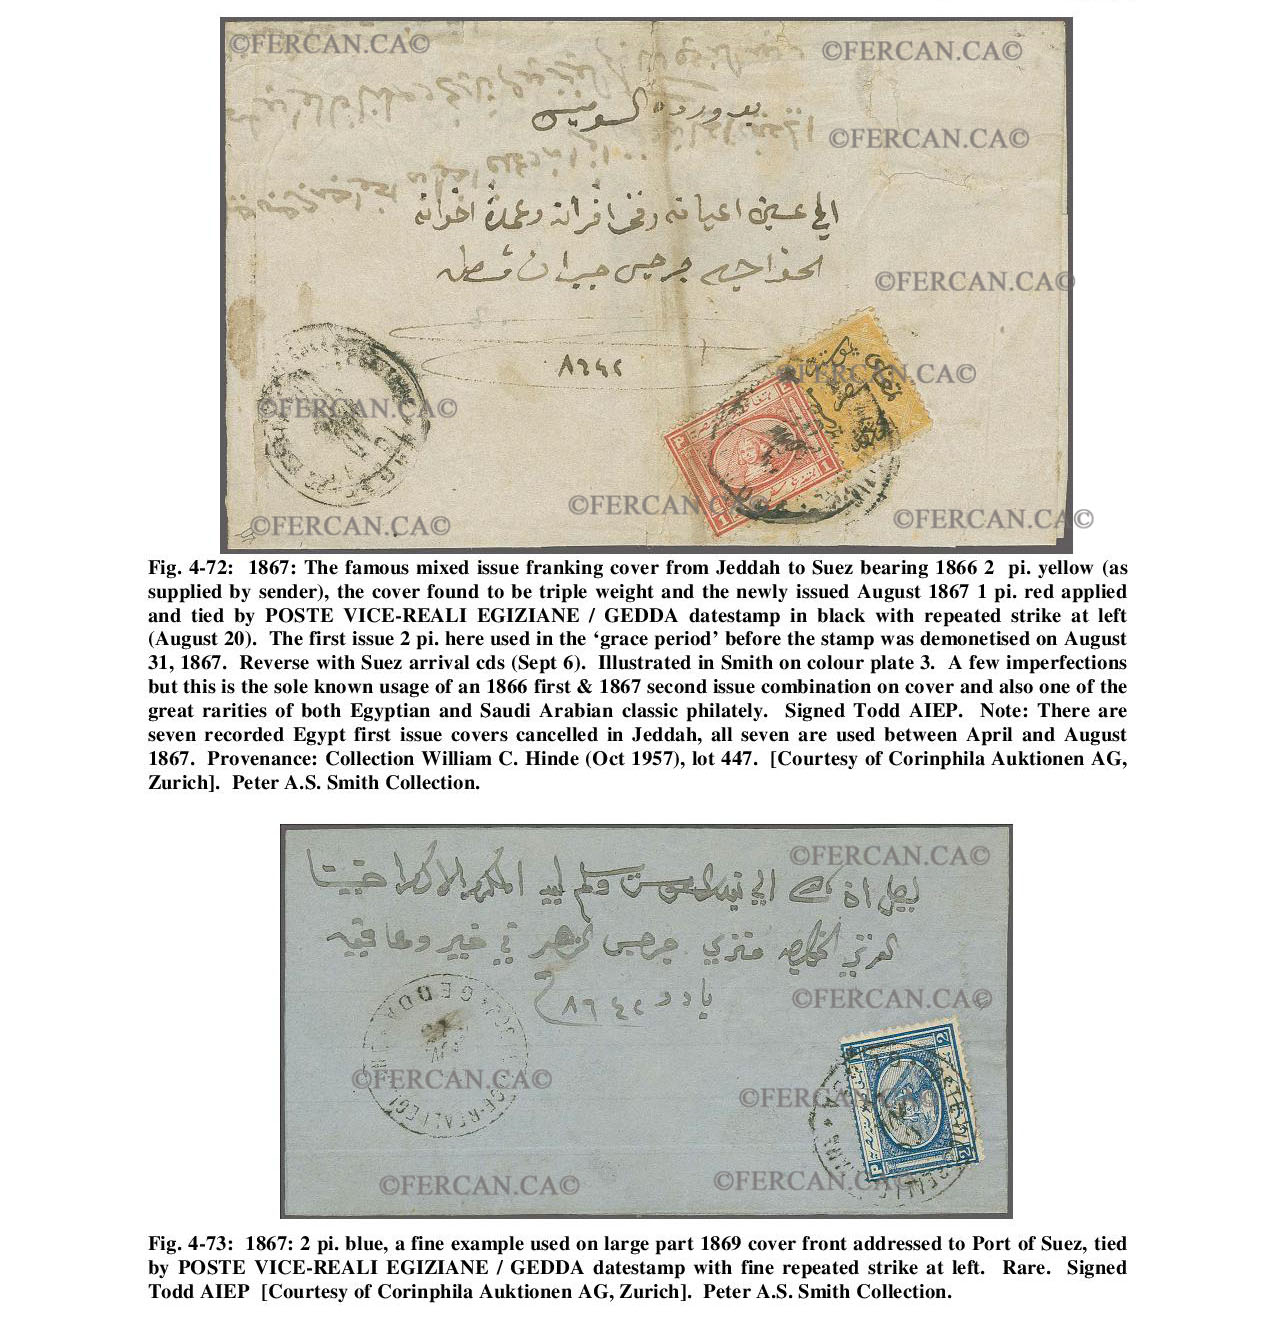 ©FERCAN.CA© ©FERCAN.CA©
بوروده السويس
©FERCAN.CA©
الى عين اعيانه وفخر اقرانه وعمدة اخوانه
الخواجه جرجس جبران
©FERCAN.CA©
٨٦٤٢
©FERCAN.CA©
©FERCAN.CA©
P E
1 1
©FERCAN.CA© ©FERCAN.CA© ©FERCAN.CA©
Fig. 4-72: 1867: The famous mixed issue franking cover from Jeddah to Suez bearing 1866 2 pi. yellow (as
supplied by sender), the cover found to be triple weight and the newly issued August 1867 1 pi. red applied
and tied by POSTE VICE-REALI EGIZIANE / GEDDA datestamp in black with repeated strike at left
(August 20). The first issue 2 pi. here used in the ‘grace period’ before the stamp was demonetised on August
31, 1867. Reverse with Suez arrival cds (Sept 6). Illustrated in Smith on colour plate 3. A few imperfections
but this is the sole known usage of an 1866 first & 1867 second issue combination on cover and also one of the
great rarities of both Egyptian and Saudi Arabian classic philately. Signed Todd AIEP. Note: There are
seven recorded Egypt first issue covers cancelled in Jeddah, all seven are used between April and August
1867. Provenance: Collection William C. Hinde (Oct 1957), lot 447. [Courtesy of Corinphila Auktionen AG,
Zurich]. Peter A.S. Smith Collection.
©FERCAN.CA©
الى السويس المكرم
جرجس في خير وعافيه
©FERCAN.CA©
٨٦٤٢
GEDDA
©FERCAN.CA© ©FERCAN.CA©
2
P 2
©FERCAN.CA© ©FERCAN.CA©
Fig. 4-73: 1867: 2 pi. blue, a fine example used on large part 1869 cover front addressed to Port of Suez, tied
by POSTE VICE-REALI EGIZIANE / GEDDA datestamp with fine repeated strike at left. Rare. Signed
Todd AIEP [Courtesy of Corinphila Auktionen AG, Zurich]. Peter A.S. Smith Collection.